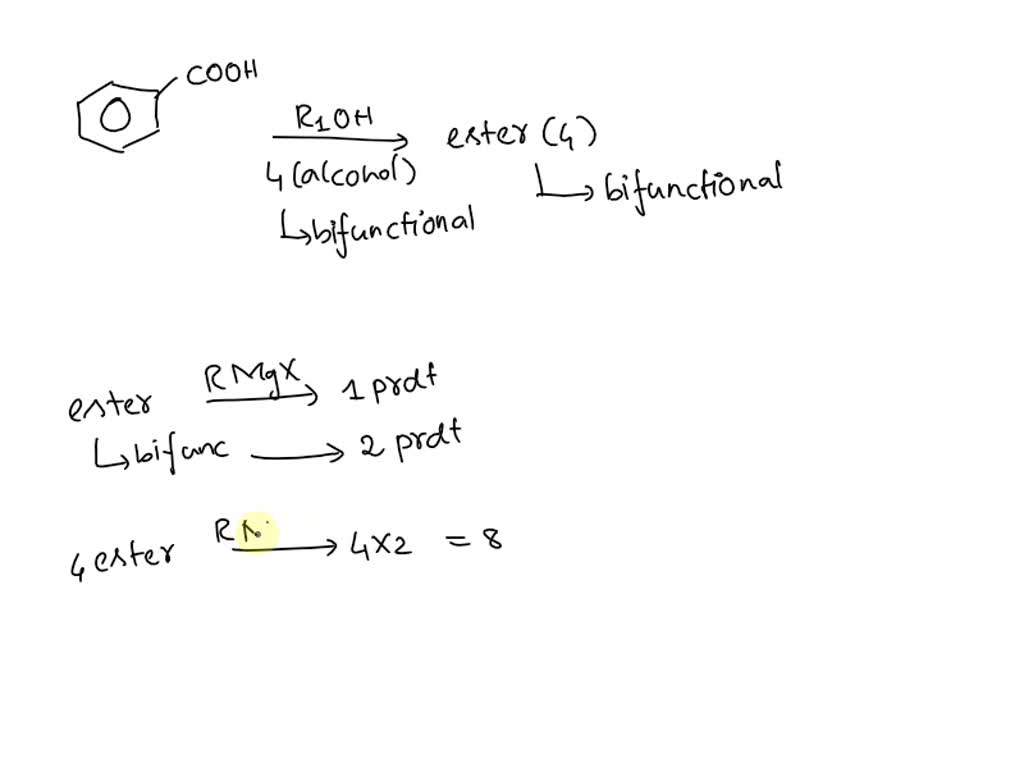 COOH
R1OH
ester (4)
4 (alcohol)
↳bifunctional
↳bifunctional
ester RMgX → 1 prdt
↳bifunc → 2 prdt
4 ester R → 4x2 = 8